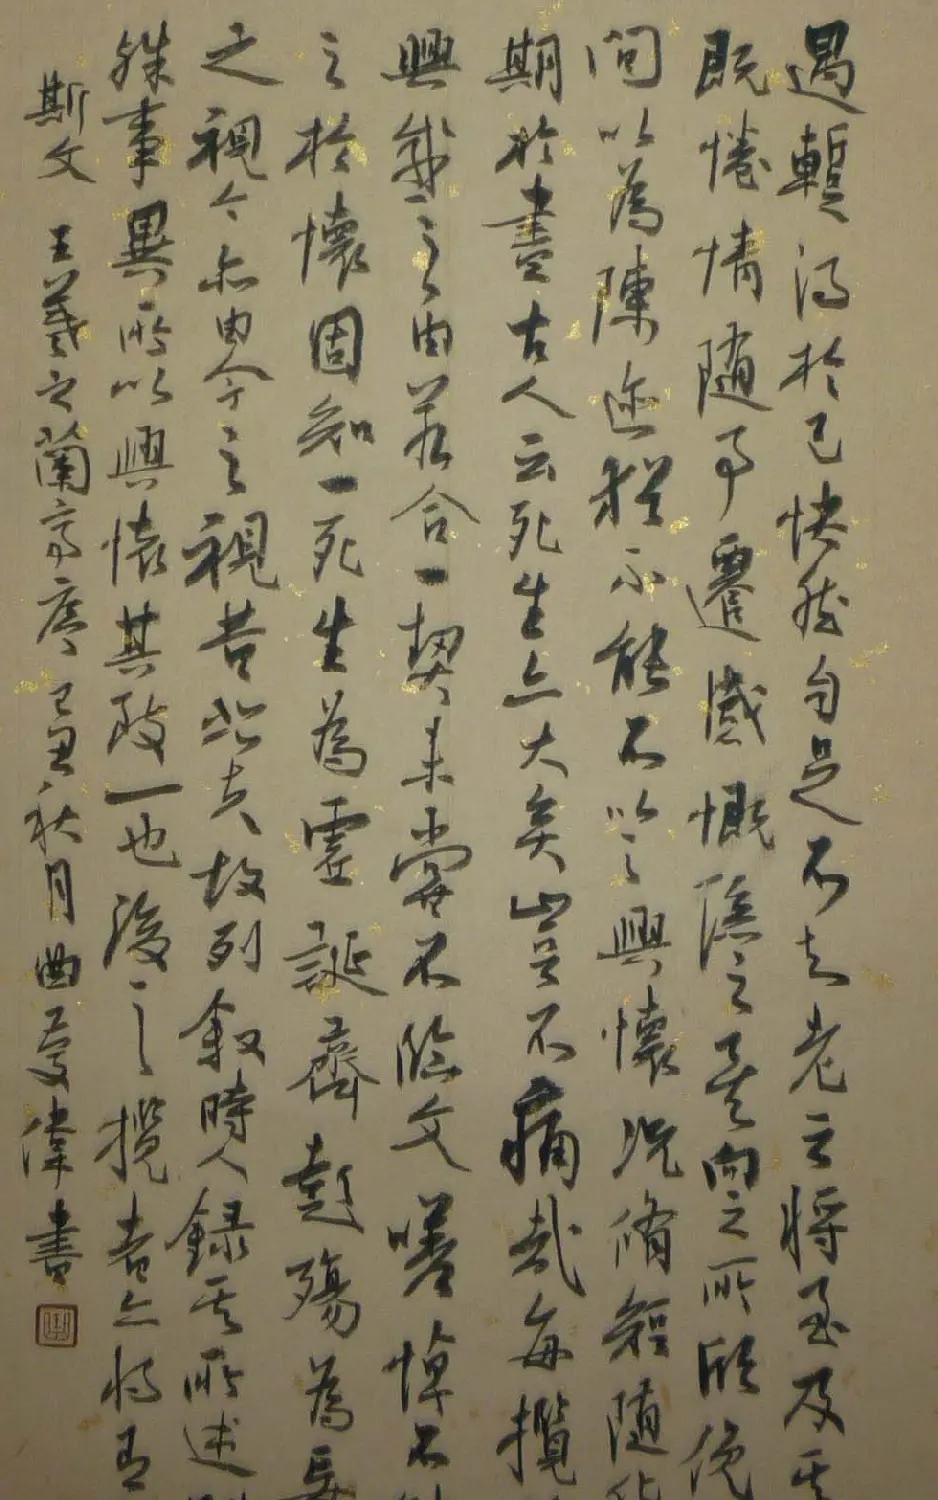 遇暫得於己快然自足不知老之將至及其
既惓情隨事遷感慨係之矣向之所欣俛
間以為陳迹猶不能不以之興懷況脩短隨化
期於盡古人云死生亦大矣豈不痛哉每攬
興感之由若合一契未嘗不臨文嗟悼不
之於懷固知一死生為虛誕齊彭殤為妄
之視今亦由今之視昔悲夫故列敘時人錄其所述
殊事異所以興懷其致一也後之攬者亦將有
斯文 王羲之蘭亭序 己丑秋月 曲慶偉書